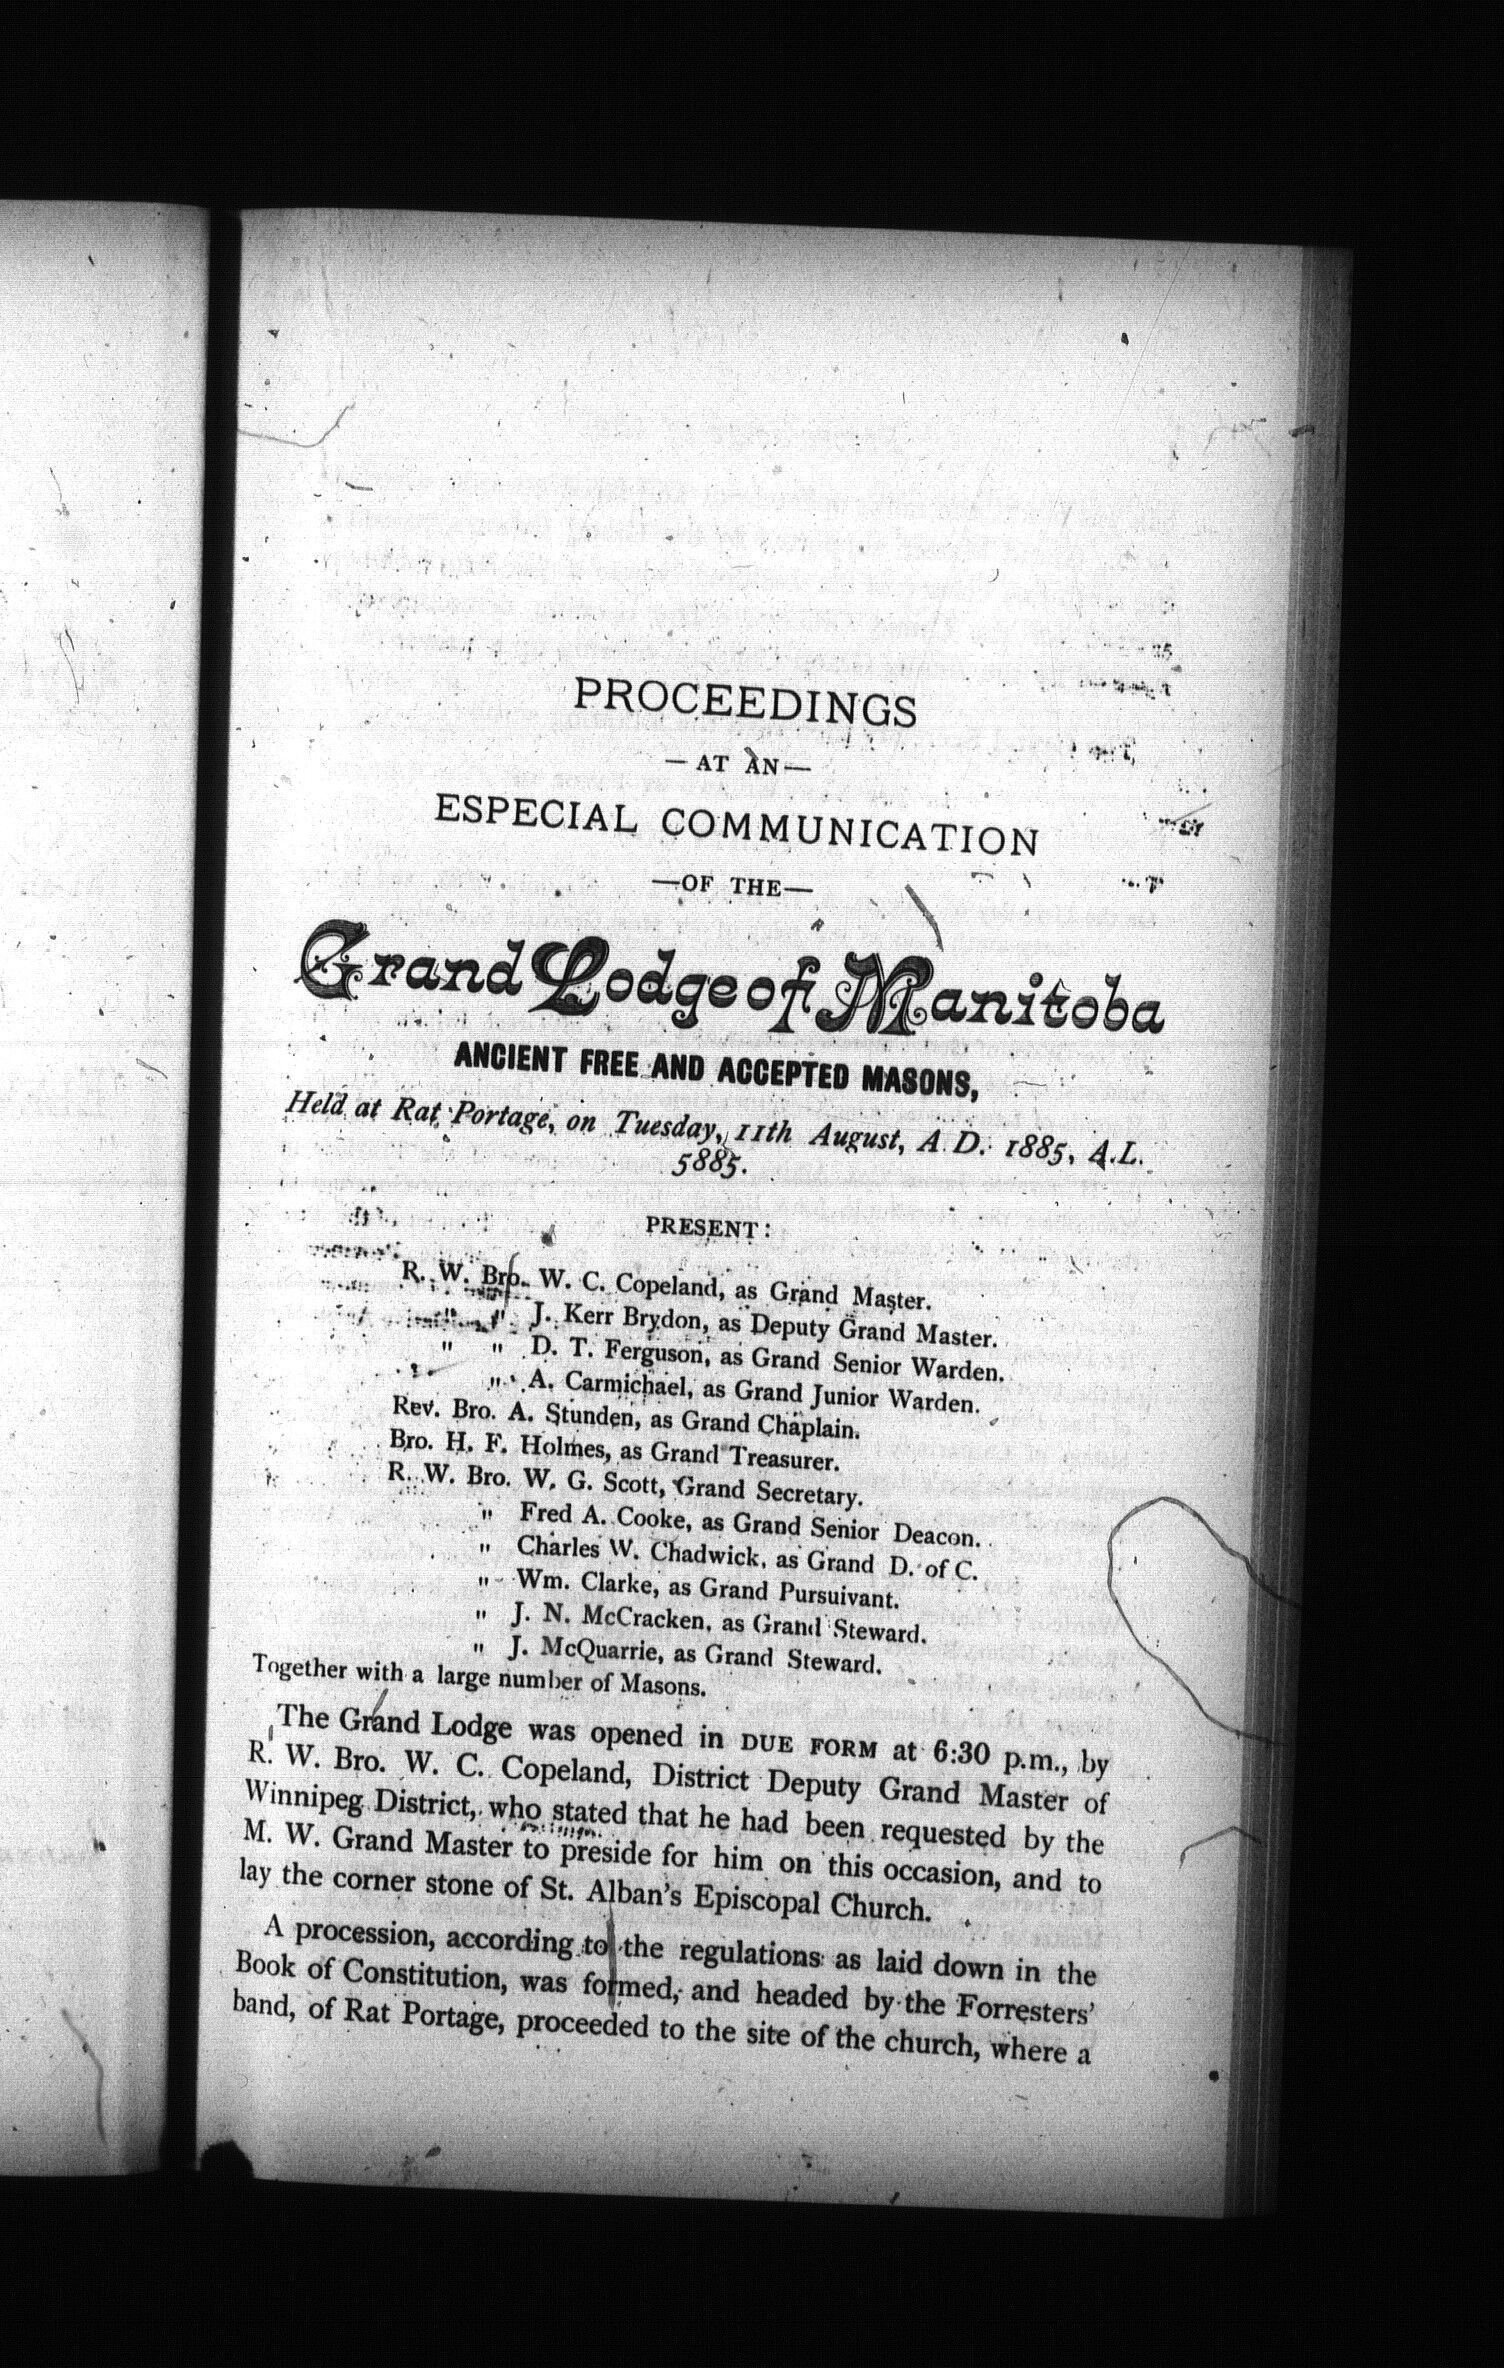 PROCEEDINGS
— AT AN —
ESPECIAL COMMUNICATION
—OF THE—
Grand Lodge of Manitoba
ANCIENT FREE AND ACCEPTED MASONS,
Held at Rat Portage, on Tuesday, 11th August, A.D. 1885, A.L.
5885.
PRESENT:
R. W. Bro. W. C. Copeland, as Grand Master.
" " J. Kerr Brydon, as Deputy Grand Master.
" " D. T. Ferguson, as Grand Senior Warden.
" A. Carmichael, as Grand Junior Warden.
Rev. Bro. A. Stunden, as Grand Chaplain.
Bro. H. F. Holmes, as Grand Treasurer.
R. W. Bro. W. G. Scott, Grand Secretary.
" Fred A. Cooke, as Grand Senior Deacon.
" Charles W. Chadwick, as Grand D. of C.
" Wm. Clarke, as Grand Pursuivant.
" J. N. McCracken, as Grand Steward.
" J. McQuarrie, as Grand Steward.
Together with a large number of Masons.
The Grand Lodge was opened in DUE FORM at 6:30 p.m., by
R. W. Bro. W. C. Copeland, District Deputy Grand Master of
Winnipeg District, who stated that he had been requested by the
M. W. Grand Master to preside for him on this occasion, and to
lay the corner stone of St. Alban's Episcopal Church.
A procession, according to the regulations as laid down in the
Book of Constitution, was formed, and headed by the Forresters'
band, of Rat Portage, proceeded to the site of the church, where a